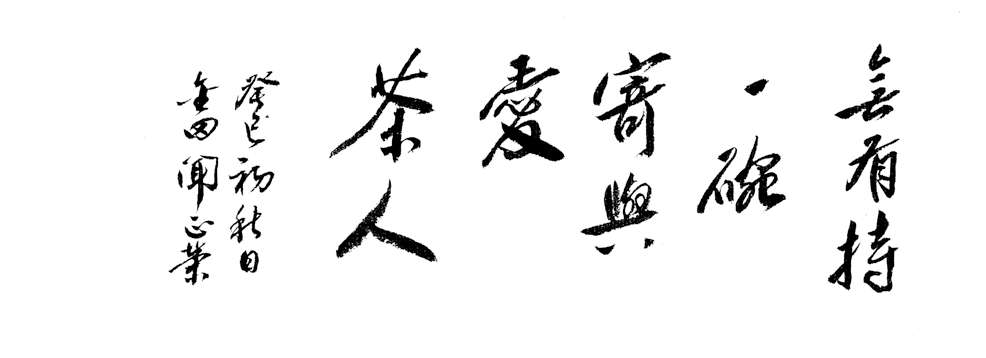 無有持
一碗
寄與
愛
茶人
癸巳初秋日
田聞正榮